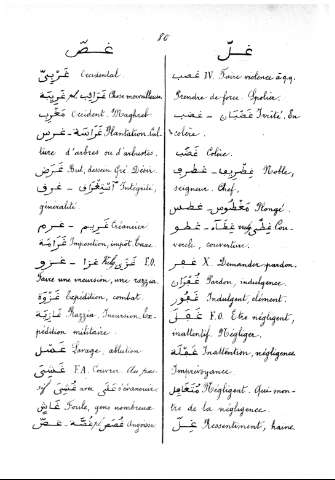 86
غـصّ
غَرْبِيّ Occidental
غَرَائِب pl غَرِيبَة Chose merveilleuse
مَغْرِب Occident. Maghreb
غرس - غَرَاسَة Plantation. Cul-
ture d'arbres ou d'arbustes.
غَرَض But, dessein Gré Désir.
غرق - اِسْتِغْرَاق Intégrité,
généralité.
غرم - غَرِيم Créancier
غَرَامَة Imposition, impot taxe
غزو - غَزَا F.O.
Faire une incursion, une razzia
غَزْوَة Expédition, combat.
Razzia. Incursion. Ex-
pédition militaire.
غَسْل Lavage, ablution
غَشِيَ F.A. Couvrir. Au pas-
sif غُشِيَ avec عَلَى s'évanouir
غَاشٍ Foule, gens nombreux
غصّ - غُصَّة pl غُصَص Angoisse
غـلّ
غصب IV. Faire violence à q.q.
Prendre de force. Spolier.
غضب - غَضْبَان Irrité, En
colère.
غَضَب Colère.
غطرف - غِطْرِيف Noble,
seigneur. Chef.
غطس - مَغْطُوس Plongé.
غطو - غِطَاء Cou-
vercle, couverture.
غفر X. Demander pardon.
غُفْرَان Pardon, indulgence.
غَفُور Indulgent, clément.
غَفَلَ F.O. Etre négligent,
inattentif. Négliger.
غَفْلَة Inattention, négligence
Imprévoyance
مُتَغَافِل Négligent. Qui mon-
tre de la négligence.
غِلّ Ressentiment, haine.